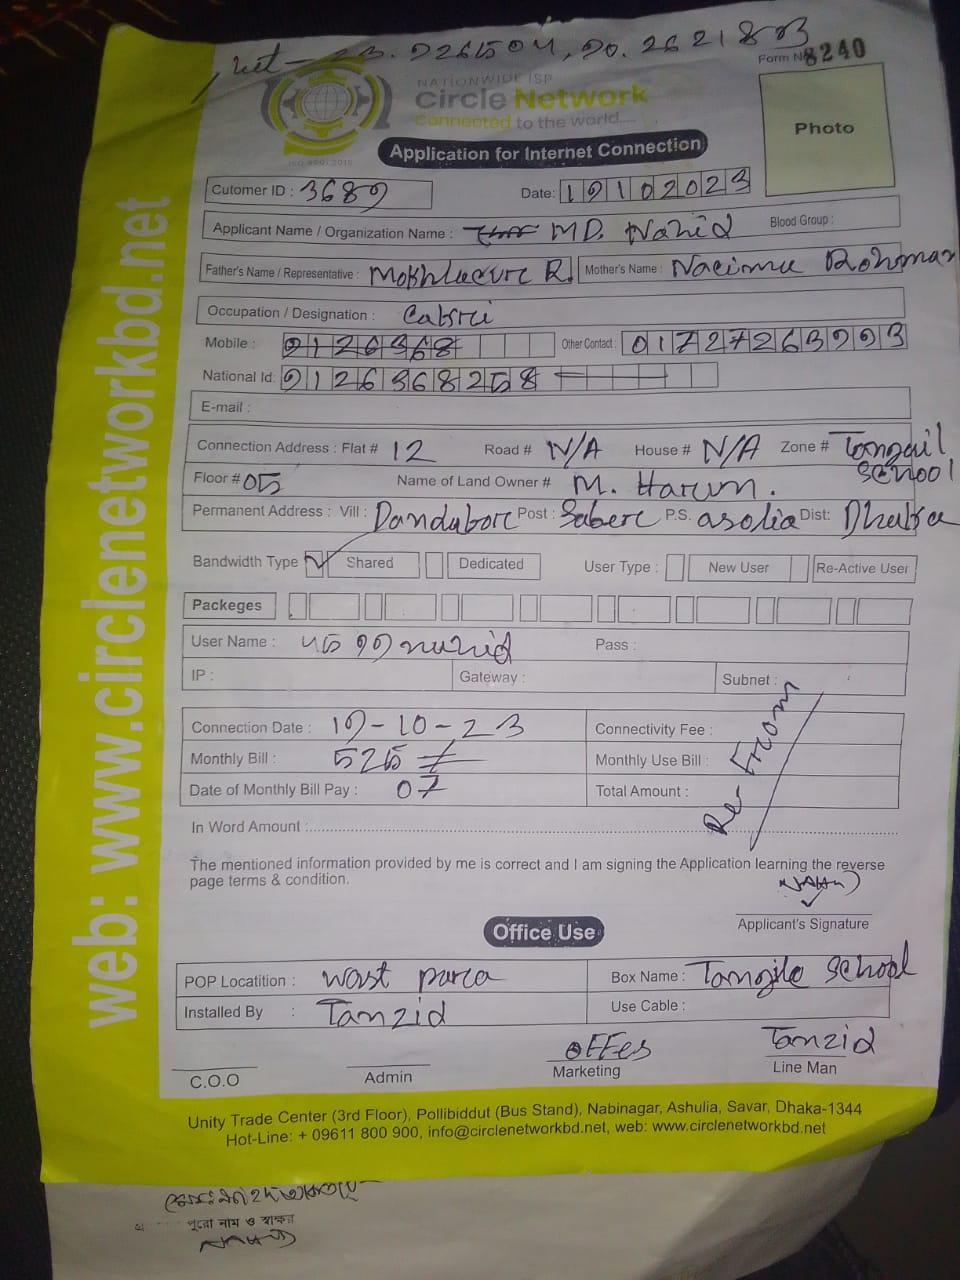 Form No 8240
NATIONWIDE ISP
Circle Network
Connected to the world....
ISO 9001:2015
Application for Internet Connection
Photo
Cutomer ID : 3689
Date: 19102023
Applicant Name / Organization Name : MD. Nahid Blood Group :
Father's Name / Representative : R. Mother's Name : Naeima Rohman
Occupation / Designation :
Mobile : 9126968 Other Contact : 01727263993
National Id: 9126968258
E-mail :
Connection Address : Flat # 12 Road # N/A House # N/A Zone # Tangail School
Floor # 05 Name of Land Owner # M. Harun.
Permanent Address : Vill : Dandabore Post : Saberc P.S. asolia Dist: Dhaka
Bandwidth Type Shared Dedicated User Type : New User Re-Active User
Packeges
User Name : nuhid Pass :
IP : Gateway : Subnet :
Connection Date : 19-10-23 Connectivity Fee :
Monthly Bill : 525 Monthly Use Bill :
Date of Monthly Bill Pay : 07 Total Amount :
Re-
In Word Amount :
The mentioned information provided by me is correct and I am signing the Application learning the reverse
page terms & condition.
NAHID
Applicant's Signature
Office Use
POP Locatition : Wast para Box Name : Tangile School
Installed By : Tanzid Use Cable :
OFFes Tanzid
C.O.O Admin Marketing Line Man
Unity Trade Center (3rd Floor), Pollibiddut (Bus Stand), Nabinagar, Ashulia, Savar, Dhaka-1344
Hot-Line: + 09611 800 900, info@circlenetworkbd.net, web: www.circlenetworkbd.net
web: www.circlenetworkbd.net
পুরো নাম ও স্বাক্ষর
NAHID